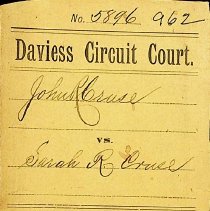 No. 5896 962
Daviess Circuit Court.
John R Cruse
vs.
Sarah R Cruse